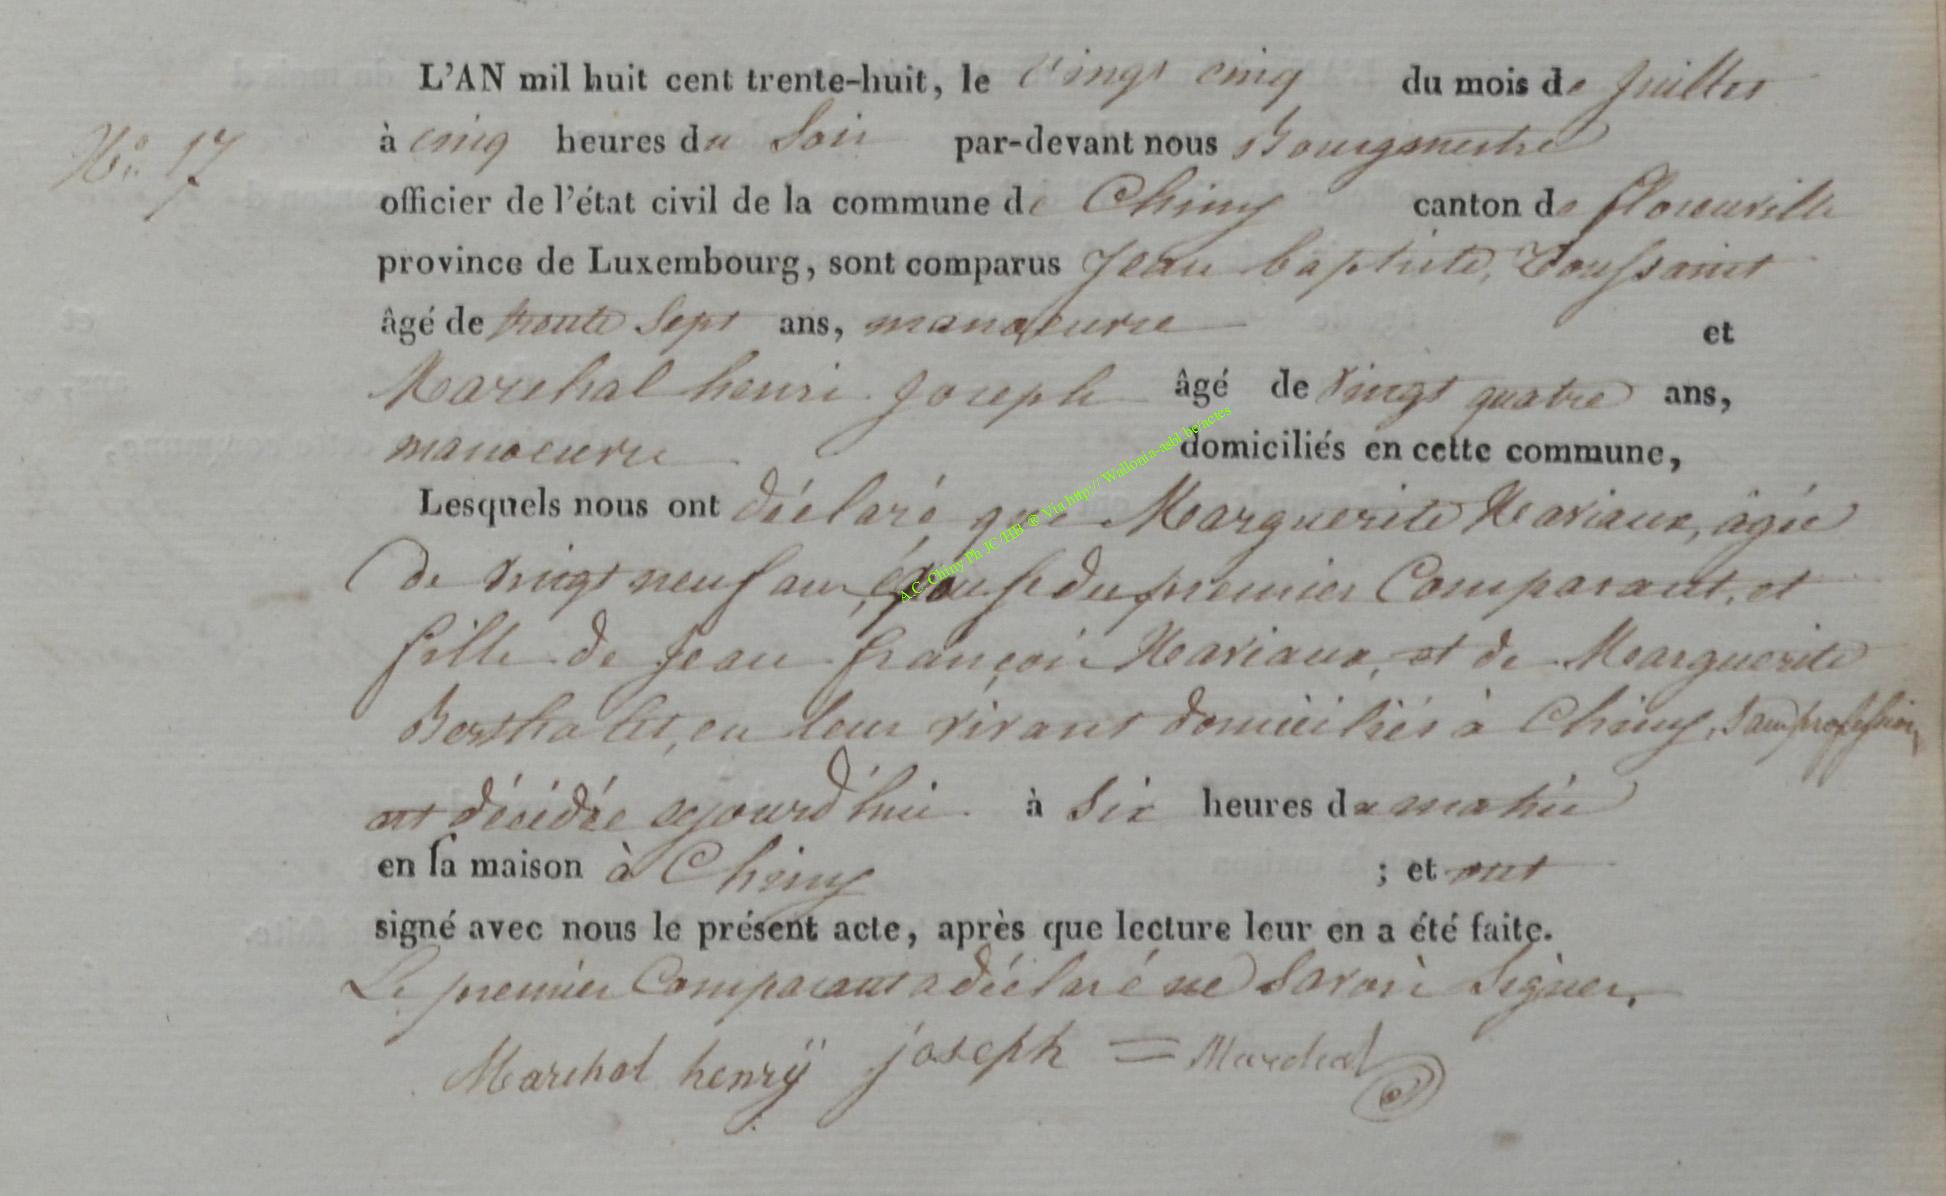 L'AN mil huit cent trente-huit, le Vingt cinq du mois de Juillet
No. 17
à cinq heures du Soir par-devant nous Bourgmestre
officier de l'état civil de la commune de Chiny canton de florenville
province de Luxembourg, sont comparus Jean baptiste, Toussaint
âgé de trente Sept ans, manoeuvre et
Marechal henri Joseph âgé de Vingt quatre ans,
manoeuvre domiciliés en cette commune,
Lesquels nous ont déclaré que Marguerite âgée
de vingt neuf ans, épouse du premier Comparant, et
fille de Jean françois et de Marguerite
en leur vivant domiciliés à Chiny, Sans profession,
est décédée aujourd'hui à Six heures du matin
en sa maison à Chiny ; et ont
signé avec nous le présent acte, après que lecture leur en a été faite.
Le premier Comparant a déclaré ne Savoir Signer.
Marchal henrÿ joseph = Marechal
A.C. Chiny Ph JC-HB ® Via http:// Wallonia-asbl.be/actes